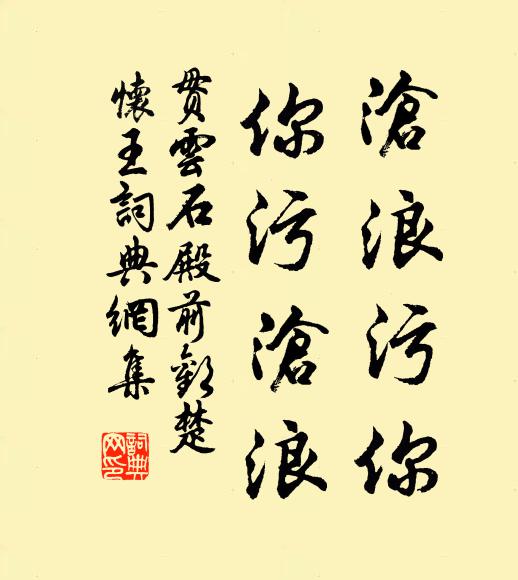 滄浪污你
你污滄浪
貫雲石殿前歡楚
懷王詞典網集
詞典
网印